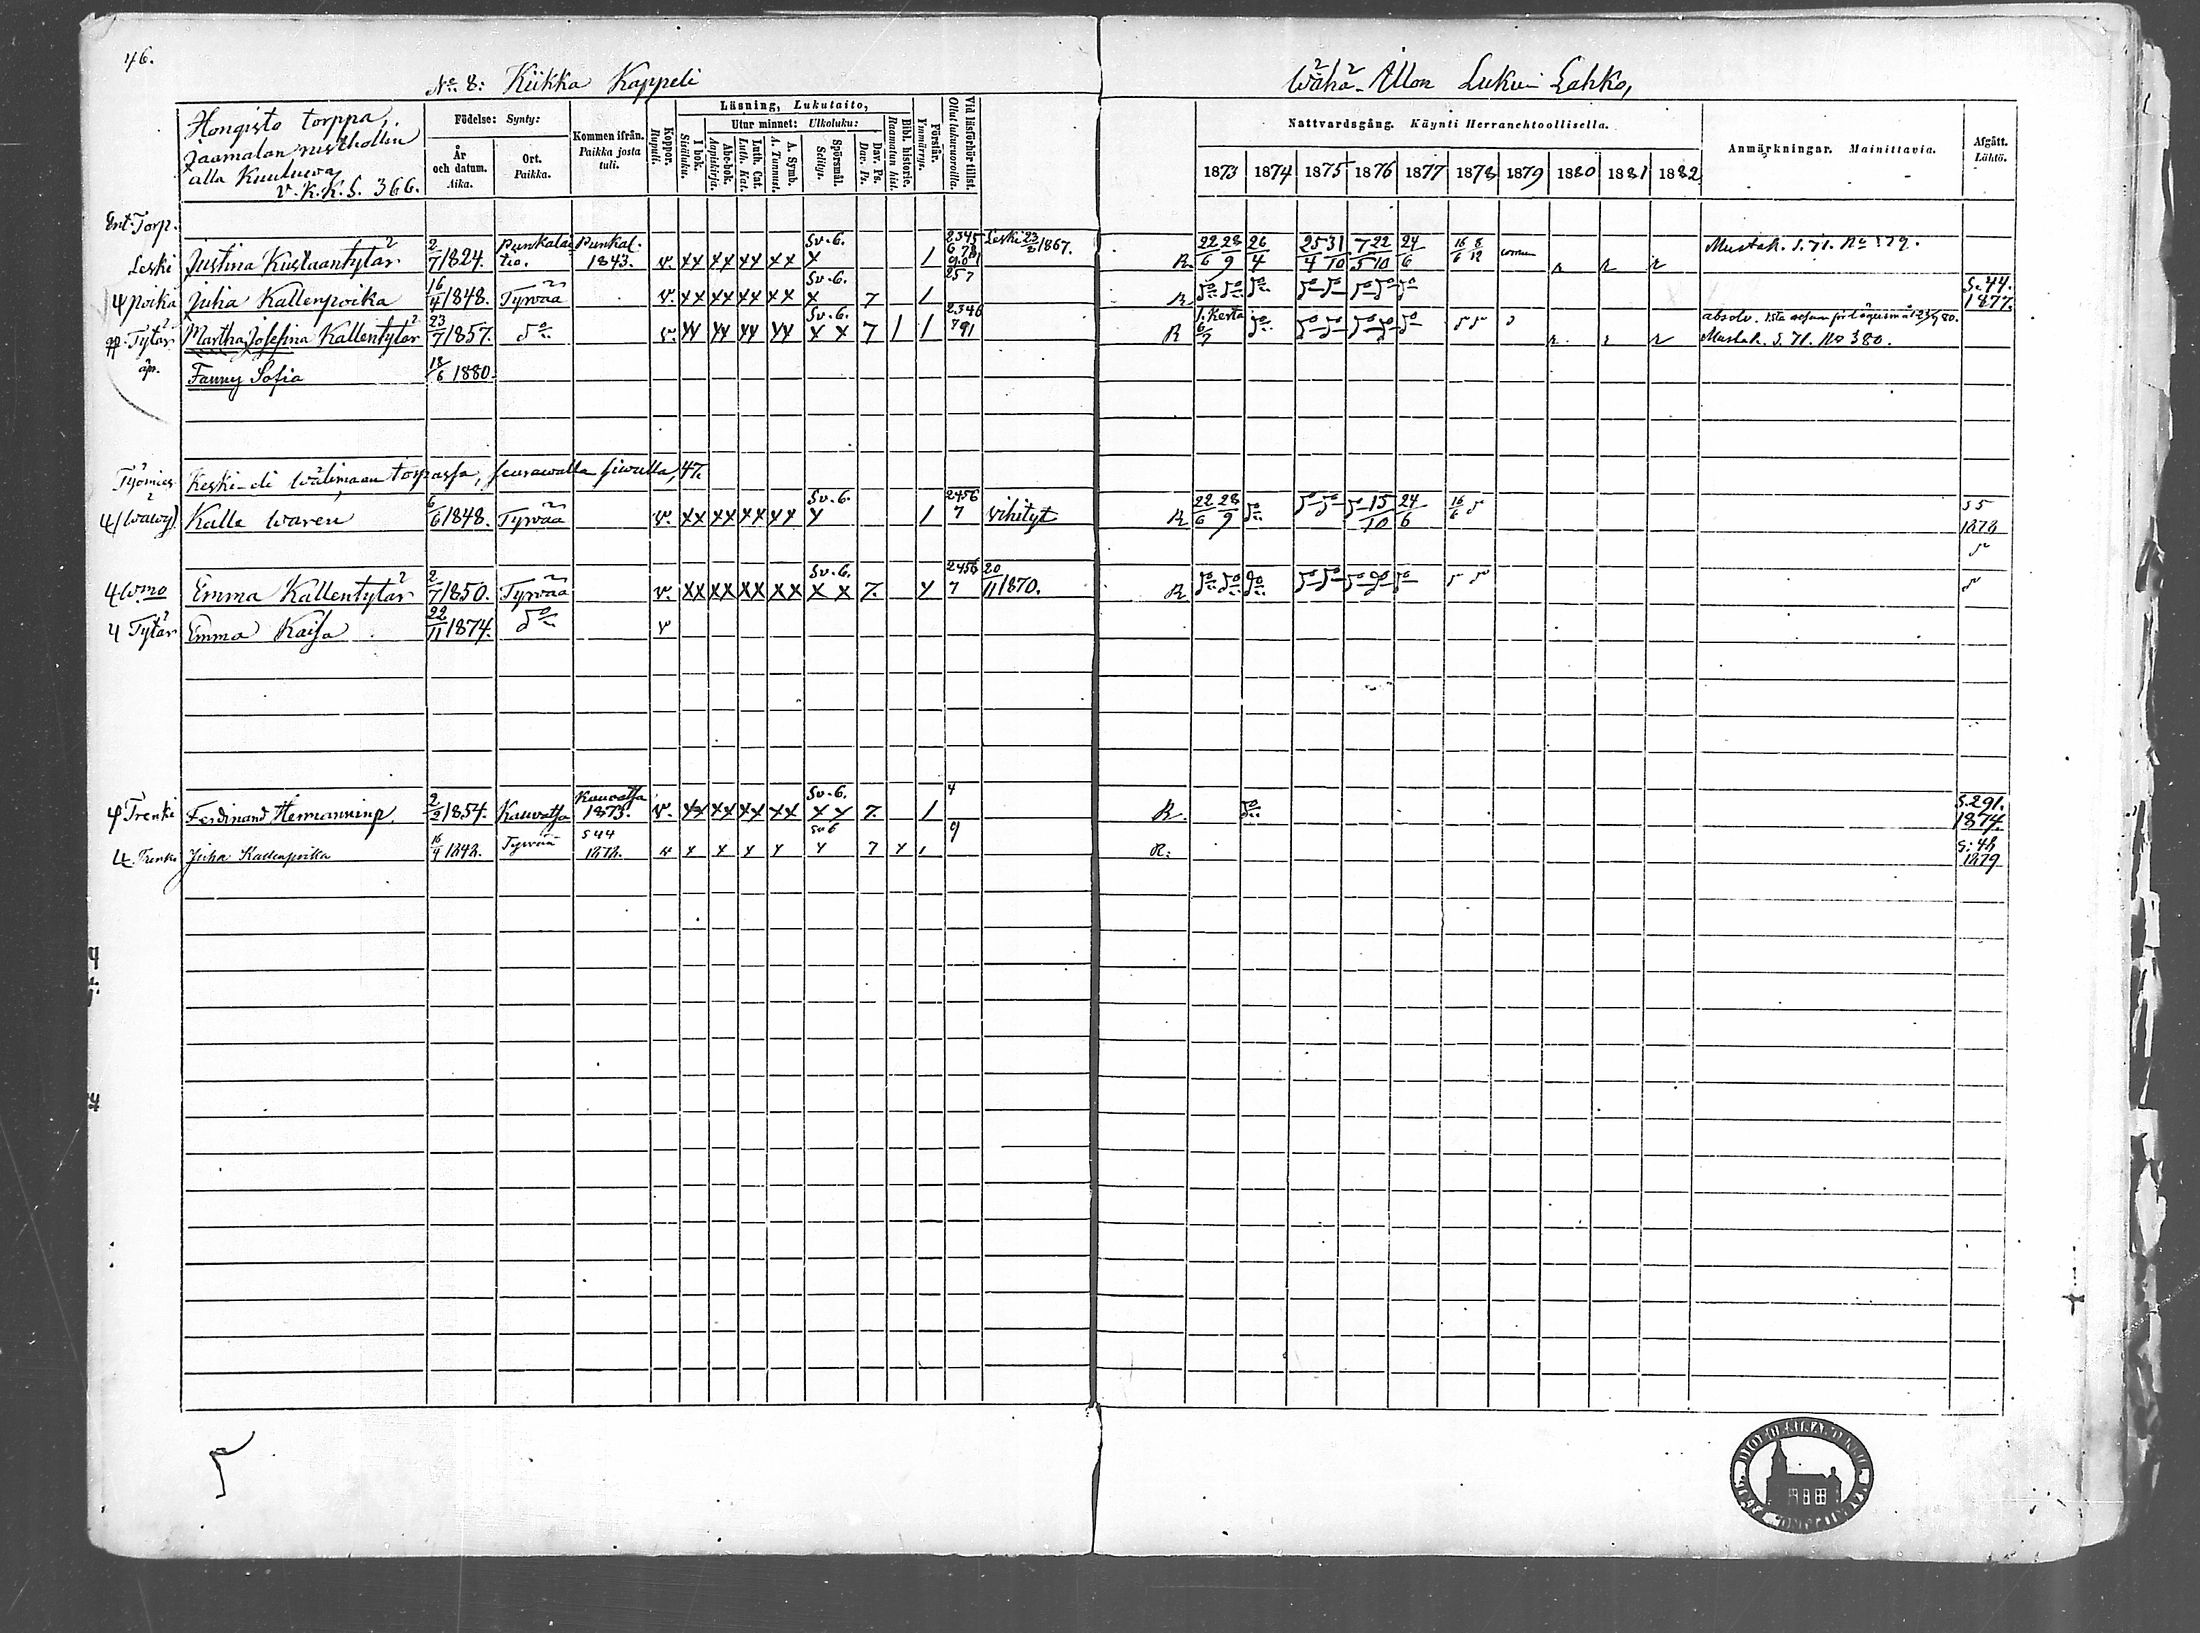 46.
No 8: Kiikka Kappeli
Wähä-Allon Luku Lahko,
Hongisto torppa,
Jaamalan rusthollin
alla Kuuluwa
v. K.K.S. 366.
Födelse: Synty:
År och datum. Aika.
Ort. Paikka.
Kommen ifrån. Paikka josta tuli.
Koppor. Rupuli.
Läsning, Lukutaito,
I bok. Sisäluku.
Utur minnet: Ulkoluku:
Abc-bok. Aapiskirja.
Luth. Cat. Luth. Kat.
A. Symb. A. Tunnust.
Spörsmål. Selitys.
Dav. Ps. Dav. Ps.
Bibl. historie. Raamatun hist.
Förstår. Ymmärrys.
Vid läsförhör tillst. Ollut lukuvuoroilla.
Nattvardsgång. Käynti Herranehtoollisella.
1873 1874 1875 1876 1877 1878 1879 1880 1881 1882
Anmärkningar. Mainittavia.
Afgått. Lähtö.
Ent. Torp.
Leski Justina Kustaantytär 2/7 1824. Punkalaitio. Punkal. 1843. v. xx xx xx xx Sv. 6. x / 2345 678 Leski 23 1867. R 22/6 28/9 26/4 25/4 31/10 7/5 22/10 24/6 16/6 8/12 Mustak. S. 71. No 379.
4 poika Juha Kallenpoika 16/4 1848. Tyrvää v. xx xx xx xx Sv. 6. x 7 / 257 R do do do do do do do do S. 44. 1877.
Tytär Martha Josefina Kallentytär 23/7 1857. do v. xx xx xx xx Sv. 6. x x 7 / / 2346 791 R 1. Kerta 6/7 do do do do do do absolv. 1sta
Mustak. S. 71. No 380.
äp. Fanny Sofia 18/6 1880.
Työmies Keski-eli Wälimaan torpassa, seurawalla siwulla, 47.
4 (Wäwy) Kalle Waren 6/6 1848. Tyrvää v. xx xx xx xx Sv. 6. x / 2456 7 Vihityt R 22/6 28/9 do do do do 15/10 24/6 16/6 S 5 1878
4 Wmo Emma Kallentytär 2/7 1850. Tyrvää v. xx xx xx xx Sv. 6. x x 7. x 2456 7 20/11 1870. R do do do do do do do do
4 Tytär Emma Kaisa 22/11 1874. do v
4 Trenki Ferdinand Hermanninp. 2/2 1854. Kauvatsa Kauvatsa 1873. v. xx xx xx xx Sv. 6. x x 7. / 4 R. do S. 291. 1874.
4 Trenki Juha Kallenpoika 16/4 1848. Tyrvää S 44 1878. v x x x x Sv 6 x 7 x / 9 R: S: 48 1879